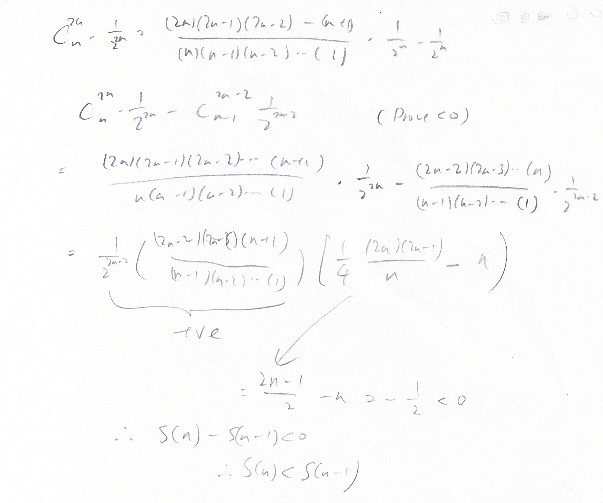 C_n^{2n} · 1/2^{2n} = (2n)(2n-1)(2n-2) ⋯ (n+1) / (n)(n-1)(n-2) ⋯ (1) · 1/2^n · 1/2^n
C_n^{2n} · 1/2^{2n} - C_{n-1}^{2n-2} 1/2^{2n-2} (Prove <0)
= (2n)(2n-1)(2n-2) ⋯ (n+1) / n(n-1)(n-2) ⋯ (1) · 1/2^{2n} - (2n-2)(2n-3) ⋯ (n) / (n-1)(n-2) ⋯ (1) · 1/2^{2n-2}
= 1/2^{2n-2} ( (2n-2)(2n-3)(n+1) / (n-1)(n-2) ⋯ (1) ) [ 1/4 (2n)(2n-1) / n - n )
+ve
= 2n-1 / 2 - n = - 1/2 < 0
∴ S(n) - S(n-1) < 0
∴ S(n) < S(n-1)